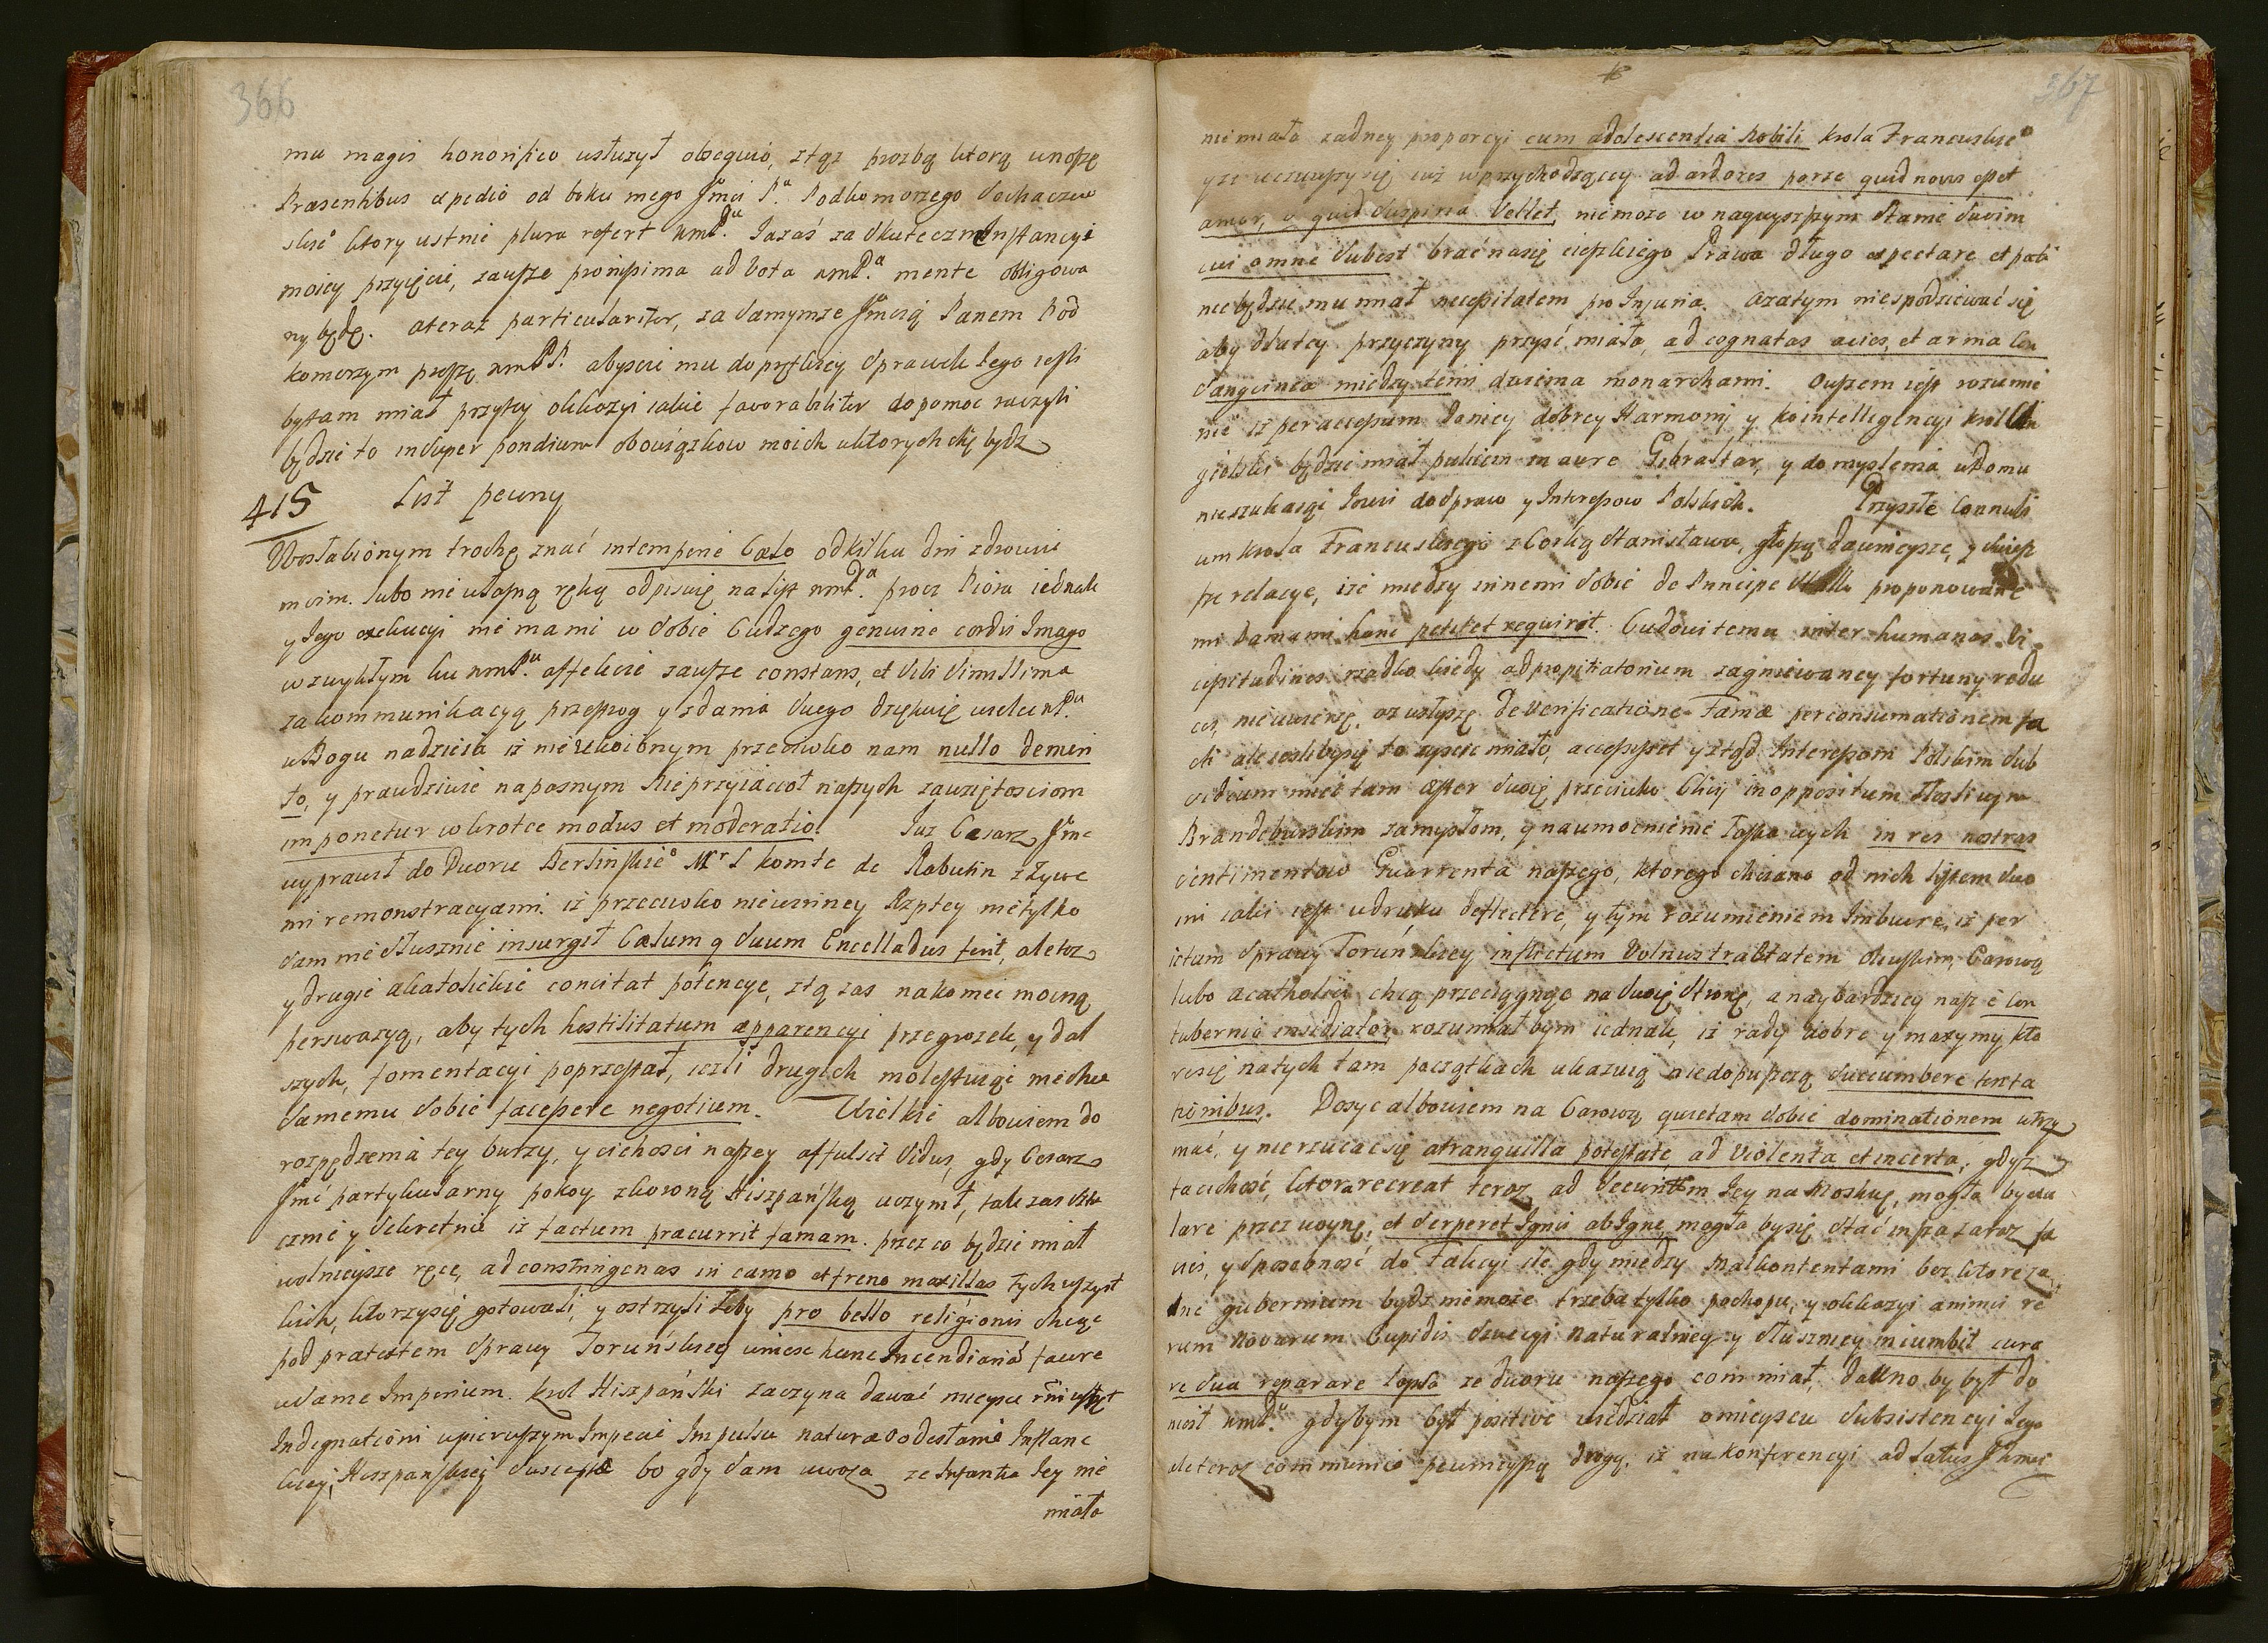 366
mu magis honorifico usłużył obsequio, ztąż prozbą ktorą unoszę
Præsentibus expedio od boku mego Jmci P.ª Podkomorzego Sochaczew
skieº ktory ustnie plura refert wmPu. Jazaś za skuteczne Instancyi
moiey przyięcie, zawsze pronissima ad vota wmP.a mente obligowa
ny będę. ateraz particulariter, za samymże Jmcią Panem Pod
komorzym proszę wmPP. abyscie mu do przeszłey sprawek Jego iesli
bytam miał przytey okkazyi iakie favorabiliter dopomoc raczyli
będzie to insuper pondium obowiązkow moich wktorych się bydz
415 List pewny
Wosłabionym trochę znać intemperie Cælo odkilku dni zdrowiu
moim. lubo nie własną ręką odpisuię na list wmP.a procz Piora iednak
y Jego exekucyi nie mami w sobie Cudzego genuine cordis Imago
wzwykłym ku wmPu. affekcie zawsze constans, et Sibi Simillima
zakommunikacyą przestrog y zdania swego dziękuię wielce wP.u
wBogu nadzieia iż nieukoionym przeciwko nam nullo demeri
to, y prawdziwie napasnym Nieprzyiacioł naszych zawziętosciom
imponetur wkrotce modus et moderatio. Juz Cesarz Jmc
wyprawił do Dworu Berlinskieº Mr L komte de Rabutin zżywe
mi remonstracyami. iż przeciwko niewinney Rzptey nietylko
sam nie słusznie insurgit Cælum q suum Encelladus ferit, aletez
y drugie akatolickie concitat potencye, ztą zas nakoniec mocną
perswazyą, aby tych hostilitatum apparencyi przegrozek, y dal
szych, fomentacyi poprzestał, ieźli drugich molestuiąc niechce
samemu sobie facessere negotium. Wielkie albowiem do
rozpędzenia tey burzy, y cichosci naszey affulsit Sidus, gdy Cesarz
Jmć partykularny pokoy zkoroną Hiszpańską uczynił, tak zas sku
cznie y sekretnie iż factum præcurrit famam. przez co będzie miał
wolnieysze ręce, ad constringenas in camo et freno maxillas tych wszyst
kich, ktorzysię gotowali, y ostrzyli zęby pro bello religionis chcąc
pod prætextem sprawy Toruńskiey wniesc hanc Incendiaria facere
wsame Imperium. Krol Hiszpański zaczyna dawać mieysce
Indignationi wpierwszym Impecie Impulsu naturæ o odesłanie Infant
kiey, Hiszpańskiey susceptæ bo gdy sam uwoza ze Infantka Jey nie
miała
367
niemiała zadney proporcyi cum adolescentia Nobili krola Francuskieº
yze uczuwszysię iuż wprzychodzącey ad ardores porze quid novus esset
amor, y quid suspiria Vellet, niemoze w naywyszszym stanie swoim
cui omne Subest brać nasię cięszkiego Prawa długo expectare et pati
nie będzie mu miał necessitatem pro Injuria. azatym niespodziewać się
aby dlatey przyczyny przyść miało, ad cognatas acies, et arma Con
sanguinea między temi dwiema monarchami. Owszem iest rozumie
nie iż per accessum Janiey dobrey Harmonij y kointelligencyi krol An
gielski będzie miał pulicem in aure Gibraltar, y do myslenia wdomu
nieszukaiąc Jowi do spraw y Interessow Polskich. Przyszłe Connubi
um krola Francuskiego z Corką Stanisława, głoszą dawnieysze, y swiez
sze relacye, isc miedzy innemi sobie de Principe proponowane
mi Damami hanc petit et requirit. Cudowi temu inter humanas Vi
cissitudines rzadko kiedy ad propitiatorium zagniewaney fortuny redu
ces, nieuwierzę, az usłyszę de Verificatione Famæ per consumationem fa
cti ale ieslibysię to zyscic miało, accessisset y ztąd Interessom Polskim sub
sidium miec tam asser swoię przeciwko Chcij in oppositum Hostium
Brandeburskim zamysłom, y na umocnienie łaskawych in res nostras
sentimentow Gwarrenta naszego, ktorego chciano od nich listem swo
im iakis iest w druku deflectere, y tym rozumieniem Imbuere, iż per
ictum sprawy Toruńskiey inflictum Volnus tractatem Oliwskim, Carową
lubo acatholici chcą przeciągnąc na swoię stronę, a naybardziey nasz è Con
tubernio insidiator, rozumiałbym iednak, iż rady dobre y maxymy kto
resię natych tam początkach ukazuią niedopuszczą succumbere tenta
tionibus. Dosyc albowiem na Carową quietam sobie dominationem utrzy
mać, y nie rzucać się a tranquilla potestate, ad violenta et incerta, gdyz
ta cichość, ktora recreat teraz ad securitem Jey na Moskwę, mogła bysiu
lare przez woynę, et serperet Ignis ab Igne, mogła bysię stać inszazaraz fa
cies, y sposobność do Fakcyi ile gdy miedzy Malkontentami bez ktore za
dne gubernium bydz niemoze trzeba tylko pochopu, y okkazyi animis re
rum novarum Cupidis Szwecyi naturalniey y słuszniey incumbit cura
re sua reparare lapsa ze dworu naszego com miał, dawno by był do
niosł wmPu. gdybym był positivè wiedział omieyscu Subsistencyi Jego
aleteraz communico pewnieyszą drogą. iż na konferencyi ad latus Jkmci